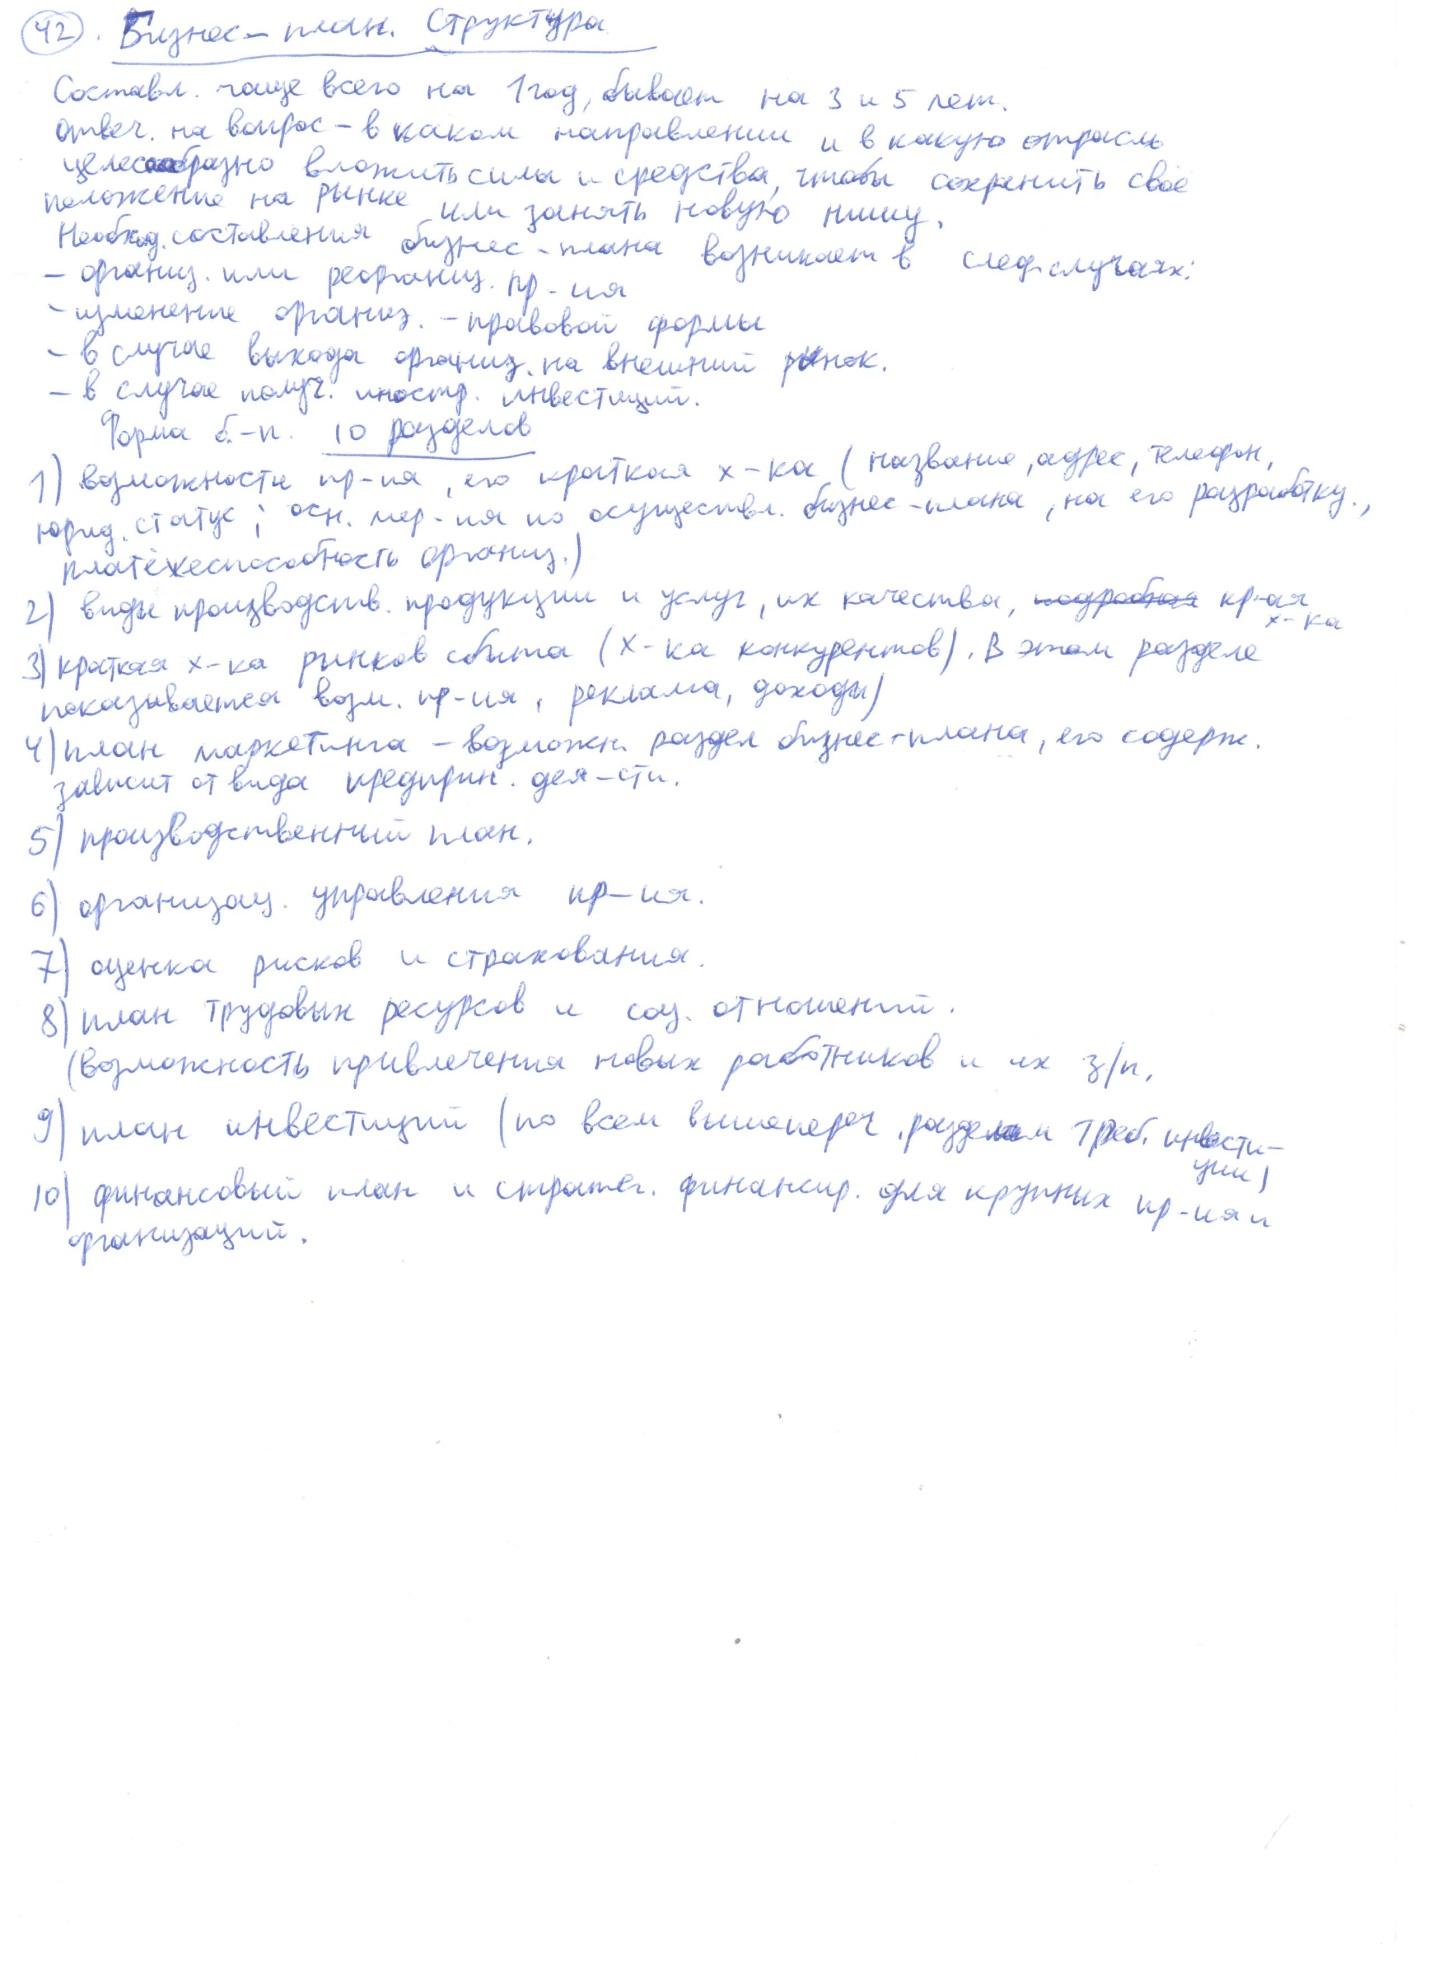 42. Бизнес-план. Структура
Составл. чаще всего на 1 год, бывает на 3 и 5 лет.
отвеч. на вопрос - в каком направлении и в какую отрасль
целесообразно вложить силы и средства, чтобы сохранить своё
положение на рынке или занять новую нишу.
Необход. составления бизнес-плана возникает в след. случаях:
- организ. или реорганиз. пр-ия
- изменение организ. - правовой формы
- в случае выхода организ. на внешний рынок.
- в случае получ. иностр. инвестиций.
Форма б.-п. 10 разделов
1) возможности пр-ия, его краткая х-ка (название, адрес, телефон,
юрид. статус; осн. мер-ия по осуществл. бизнес-плана, на его разработку.,
платёжеспособность организ.)
2) виды производств. продукции и услуг, их качества, подробная кр-ая
х-ка
3) краткая х-ка рынков сбыта (х-ка конкурентов). В этом разделе
показывается возм. пр-ия, реклама, доходы)
4) план маркетинга - возможн. раздел бизнес-плана, его содерж.
зависит от вида предприн. дея-сти.
5) производственный план.
6) организац. управления пр-ия.
7) оценка рисков и страхования.
8) план трудовых ресурсов и соц. отношений.
(возможность привлечения новых работников и их з/п.
9) план инвестиций (по всем вышепереч. разделам треб. инвести-
ции)
10) финансовый план и стратег. финансир. для крупных пр-ия и
организаций.